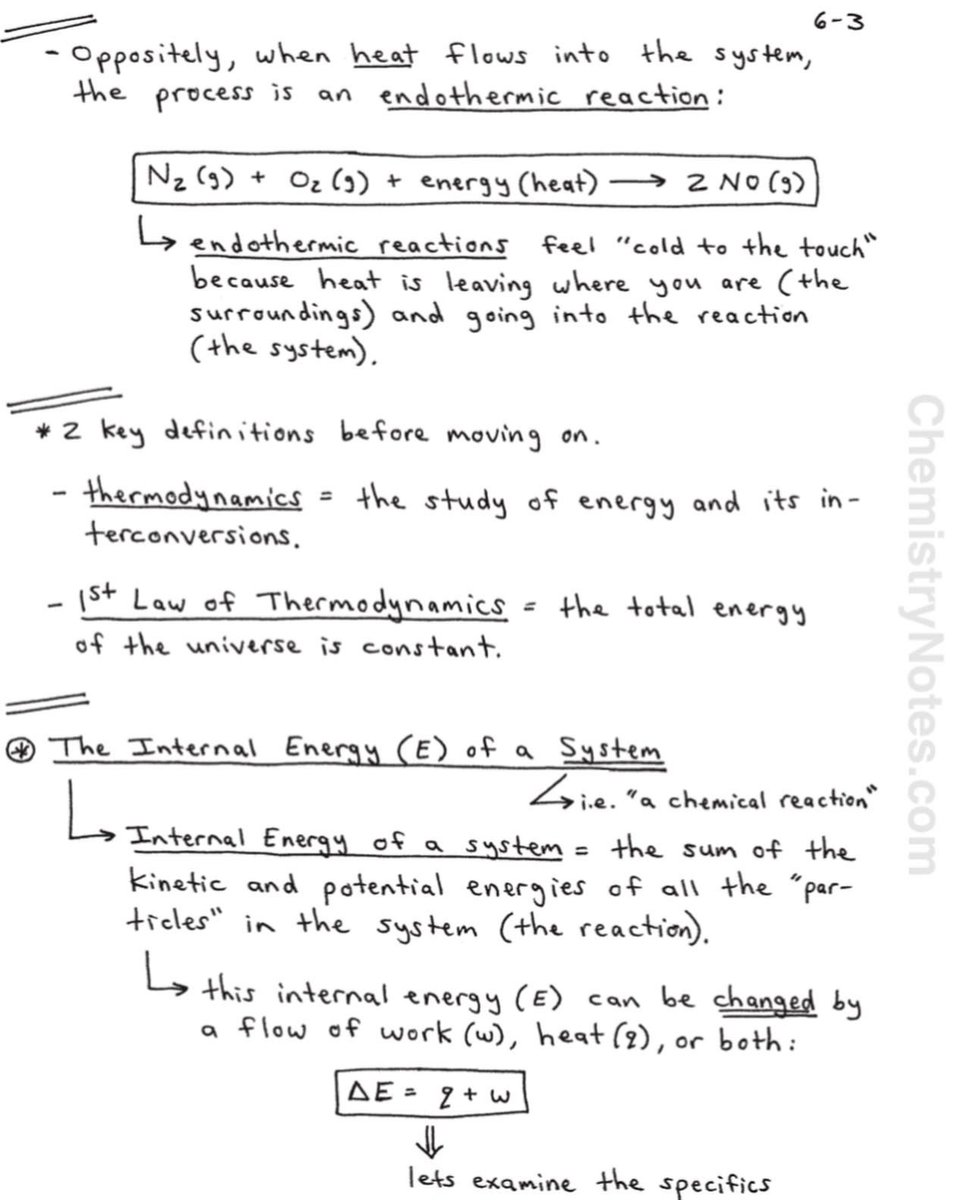 6-3
- Oppositely, when heat flows into the system,
the process is an endothermic reaction:
N₂ (g) + O₂ (g) + energy (heat) ⟶ 2 NO (g)
↳ endothermic reactions feel "cold to the touch"
because heat is leaving where you are (the
surroundings) and going into the reaction
(the system).
* 2 key definitions before moving on.
- thermodynamics = the study of energy and its in-
terconversions.
- 1st Law of Thermodynamics = the total energy
of the universe is constant.
⊛ The Internal Energy (E) of a System
↳ i.e. "a chemical reaction"
↳ Internal Energy of a system = the sum of the
kinetic and potential energies of all the "par-
ticles" in the system (the reaction).
↳ this internal energy (E) can be changed by
a flow of work (w), heat (q), or both:
ΔE = q + w
⇓
lets examine the specifics
ChemistryNotes.com